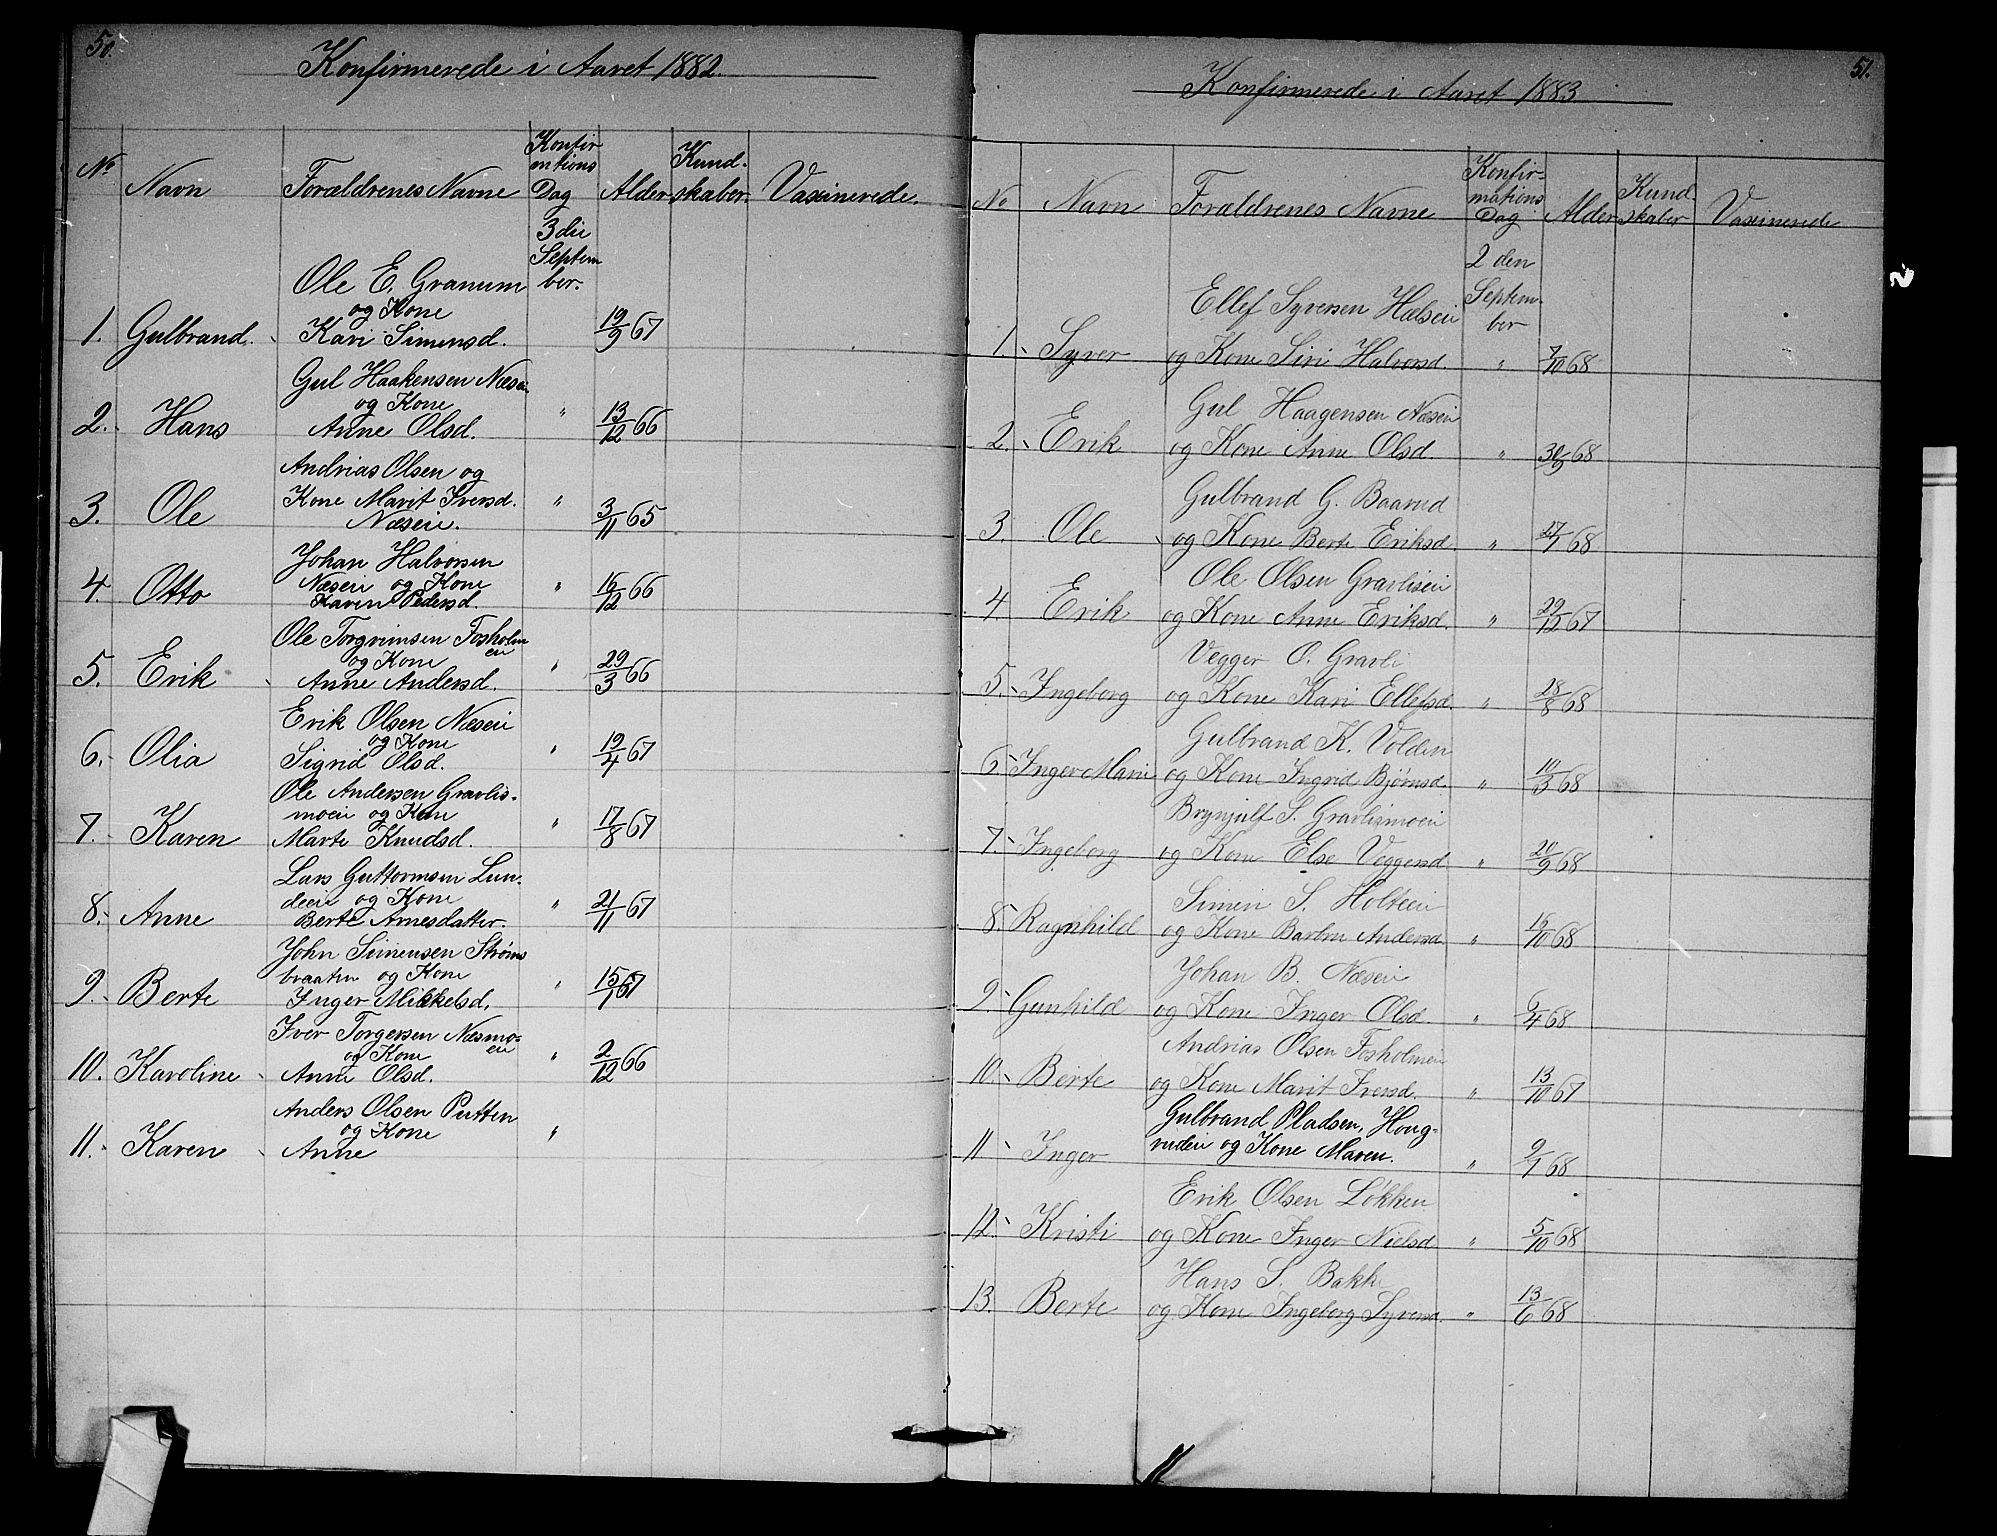 50.
Konfirmerede i Aaret 1882.
No Navn Forældrenes Navne Konfirmations Dag Alder Kundskaber. Vaxinerede.
3die September.
Ole E. Granum
og Kone
1. Gulbrand. Kari Simensd. 19/9 67
Gul Haakensen Næsen
og Kone
2. Hans Anne Olsd. " 13/12 66
Andrias Olsen og
Kone Marit Iversd.
3. Ole Næseie. " 3/11 65
Johan Halvorsen
Næseie og Kone
4. Otto Karen Pedersd. " 16/12 66
Ole Torgrimsen Fosholm
eie
og Kone
5. Erik Anne Andersd. " 29/3 66
Erik Olsen Næseie
og Kone
6. Olia Sigrid Olsd. " 19/4 67
Ole Andersen Gravlis-
moeie og Kone
7. Karen Marte Knudsd. " 17/8 67
Lars Guttormsen Lun-
deeie og Kone
8. Anne Berte Arnesdatter. " 21/11 67
John Simensen Strøms
braaten og Kone
9. Berte Inger Mikkelsd. " 15/1 67
Iver Torgersen Næsmo-
eie
og Kone
10. Karoline Anne Olsd. " 2/12 66
Anders Olsen Putten
og Kone
11. Karen Anne "
51.
Konfirmerede i Aaret 1883
No Navn Forældrenes Navne Konfirmations Dag Alder Kundskaber Vaxinerede
2 den September
Ellef Syversen Hælseie
1. Syver og Kone Siri Halvorsd. " 7/10 68
Gul Haagensen Næseie
2. Erik og Kone Anne Olsd. " 30/9 68
Gulbrand G. Baarud
3. Ole og Kone Berte Eriksd. " 17/7 68
Ole Olsen Gravliseie
4. Erik og Kone Anne Eriksd. " 29/12 67
Vegger O. Gravli
5. Ingeborg og Kone Kari Ellefsd. " 28/8 68
Gulbrand K. Volden
6. Inger Marie og Kone Ingrid Bjørnsd. " 10/3 68
Brynjulf S. Gravlismoeie
7. Ingeborg og Kone Else Veggersd " 20/9 68
Simen S. Holteeie
8. Ragnhild og Kone Barbro Andersd. " 16/10 68
Johan B. Næseie
9. Gunhild og Kone Inger Olsd. " 6/4 68
Andrias Olsen Fosholmeie
10. Berte og Kone Marit Iversd. " 13/10 67
Gulbrand Pladsen, Houg-
11 Inger rudeie og Kone Maren. " 9/1 68
Erik Olsen Løkken
12. Kristi og Kone Inger Nielsd " 5/10 68
Hans S. Bakke
13. Berte og Kone Ingeborg Syversd. " 13/6 68